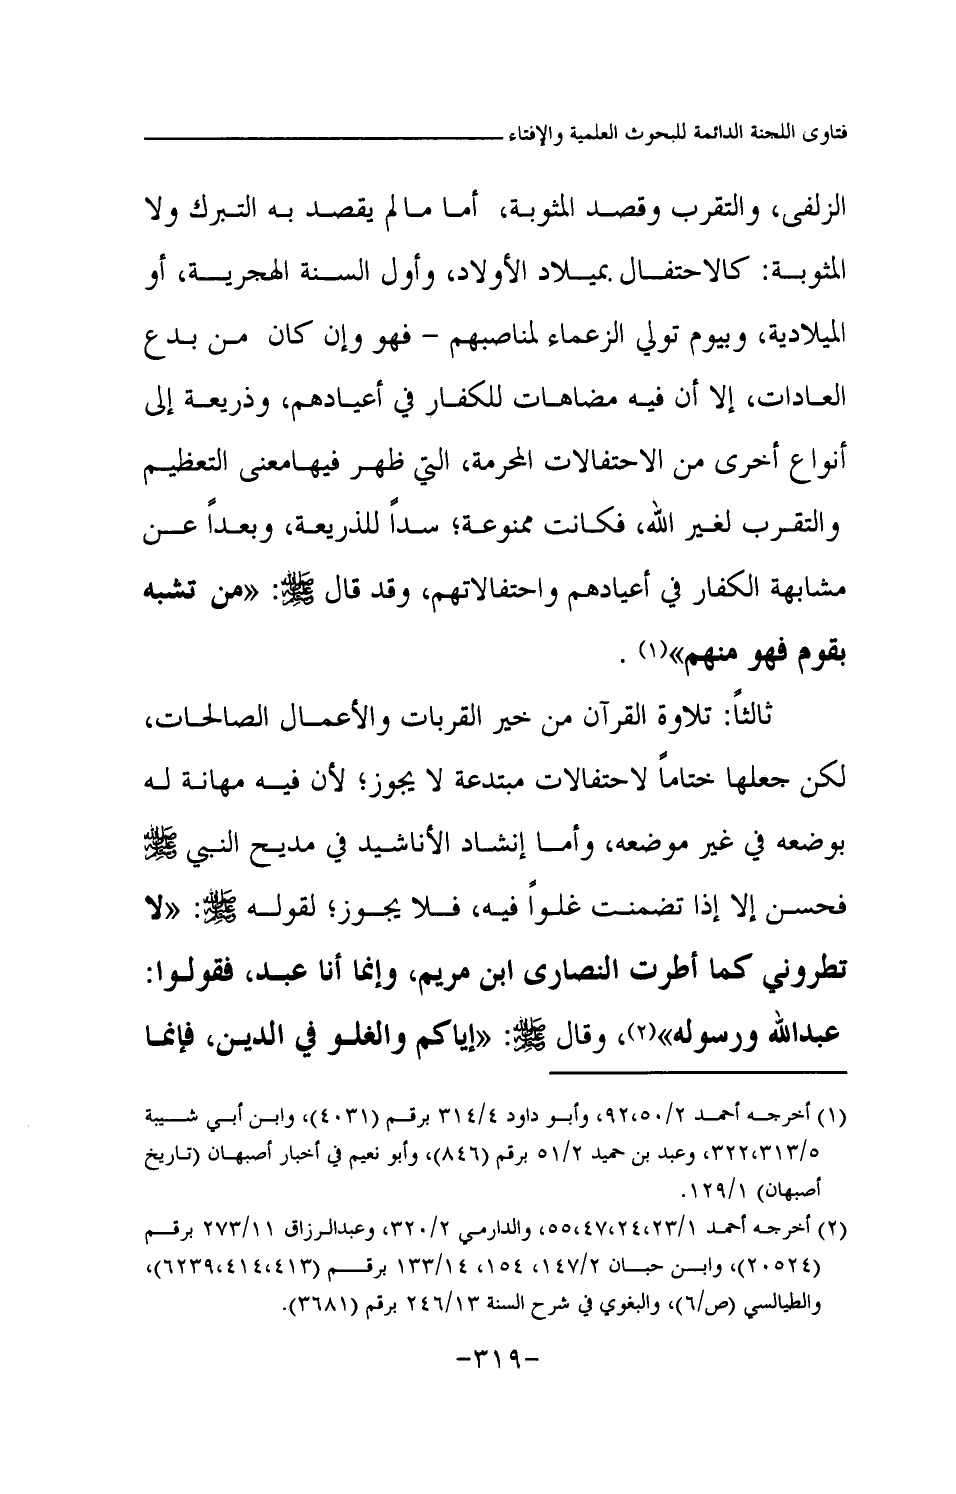 فتاوى اللجنة الدائمة للبحوث العلمية والإفتاء
الزلفى، والتقرب وقصد المثوبة، أما ما لم يقصد به التبرك ولا
المثوبة: كالاحتفال بميلاد الأولاد، وأول السنة الهجرية، أو
الميلادية، وبيوم تولي الزعماء لمناصبهم – فهو وإن كان من بدع
العادات، إلا أن فيه مضاهات للكفار في أعيادهم، وذريعة إلى
أنواع أخرى من الاحتفالات المحرمة، التي ظهر فيهامعنى التعظيم
والتقرب لغير الله، فكانت ممنوعة؛ سداً للذريعة، وبعداً عن
مشابهة الكفار في أعيادهم واحتفالاتهم، وقد قال ﷺ: «من تشبه
بقوم فهو منهم»(١) .
ثالثاً: تلاوة القرآن من خير القربات والأعمال الصالحات،
لكن جعلها ختاماً لاحتفالات مبتدعة لا يجوز؛ لأن فيه مهانة له
بوضعه في غير موضعه، وأما إنشاد الأناشيد في مديح النبي ﷺ
فحسن إلا إذا تضمنت غلواً فيه، فلا يجوز؛ لقوله ﷺ: «لا
تطروني كما أطرت النصارى ابن مريم، وإنما أنا عبد، فقولوا:
عبدالله ورسوله»(٢)، وقال ﷺ: «إياكم والغلو في الدين، فإنما
(١) أخرجه أحمد ٢/ ٩٢،٥٠، وأبو داود ٤/ ٣١٤ برقم (٤٠٣١)، وابن أبي شيبة
٥/ ٣٢٢،٣١٣، وعبد بن حميد ٢/ ٥١ برقم (٨٤٦)، وأبو نعيم في أخبار أصبهان (تاريخ
أصبهان) ١/ ١٢٩.
(٢) أخرجه أحمد ١/ ٥٥،٤٧،٢٤،٢٣، والدارمي ٢/ ٣٢٠، وعبدالرزاق ١١/ ٢٧٣ برقم
(٢٠٥٢٤)، وابن حبان ٢/ ١٤٧، ١٥٤، ١٤/ ١٣٣ برقم (٦٢٣٩،٤١٤،٤١٣)،
والطيالسي (ص/٦)، والبغوي في شرح السنة ١٣/ ٢٤٦ برقم (٣٦٨١).
-٣١٩-